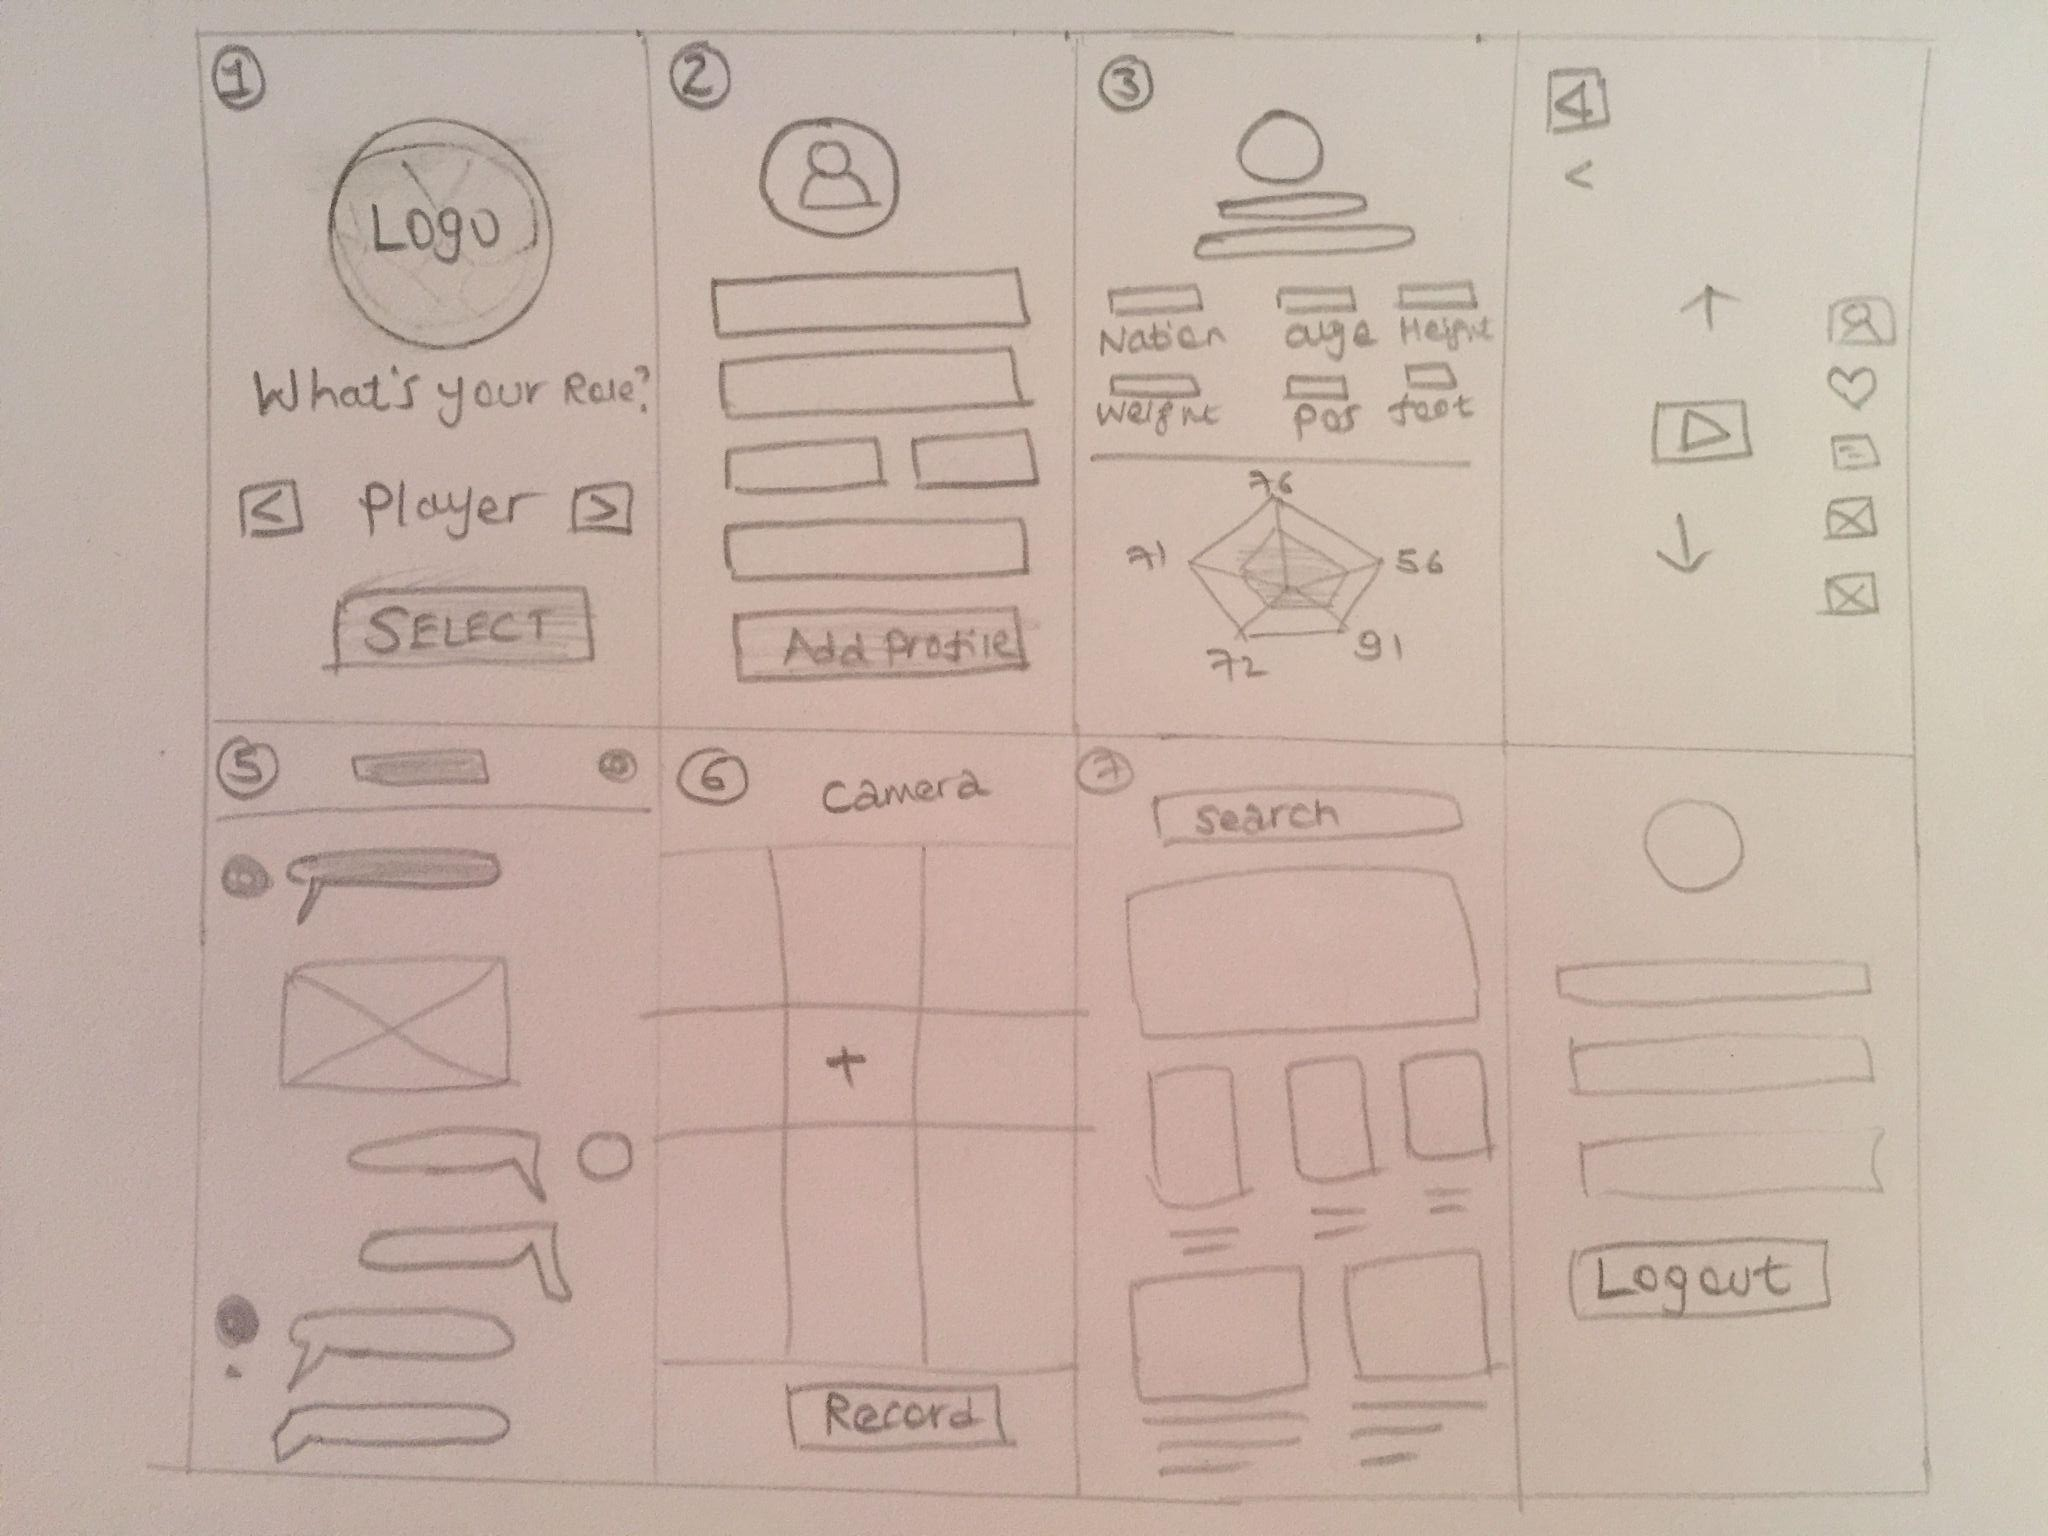 1
Logo
What's your Role?
< Player >
SELECT
2
Add Profile
3
Nation age Height
Weight Pos foot
76
71 56
72 91
4
<
5
6
camera
+
Record
7
search
Logout